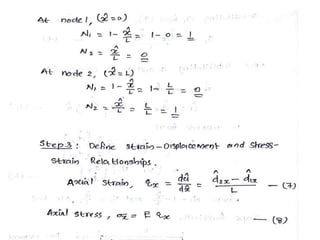 At node 1, (x̂=0)
N₁ = 1 - x̂/L = 1 - 0 = 1
N₂ = x̂/L = 0
At node 2, (x̂=L)
N₁ = 1 - x̂/L = 1 - L/L = 0
N₂ = x̂/L = L/L = 1
Step 3: Define strain-Displacement and stress-
strain Relationships.
Axial strain, εx = dû/dx̂ = (d̂₂ₓ - d̂₁ₓ)/L — (7)
Axial stress, σx = E εx — (8)